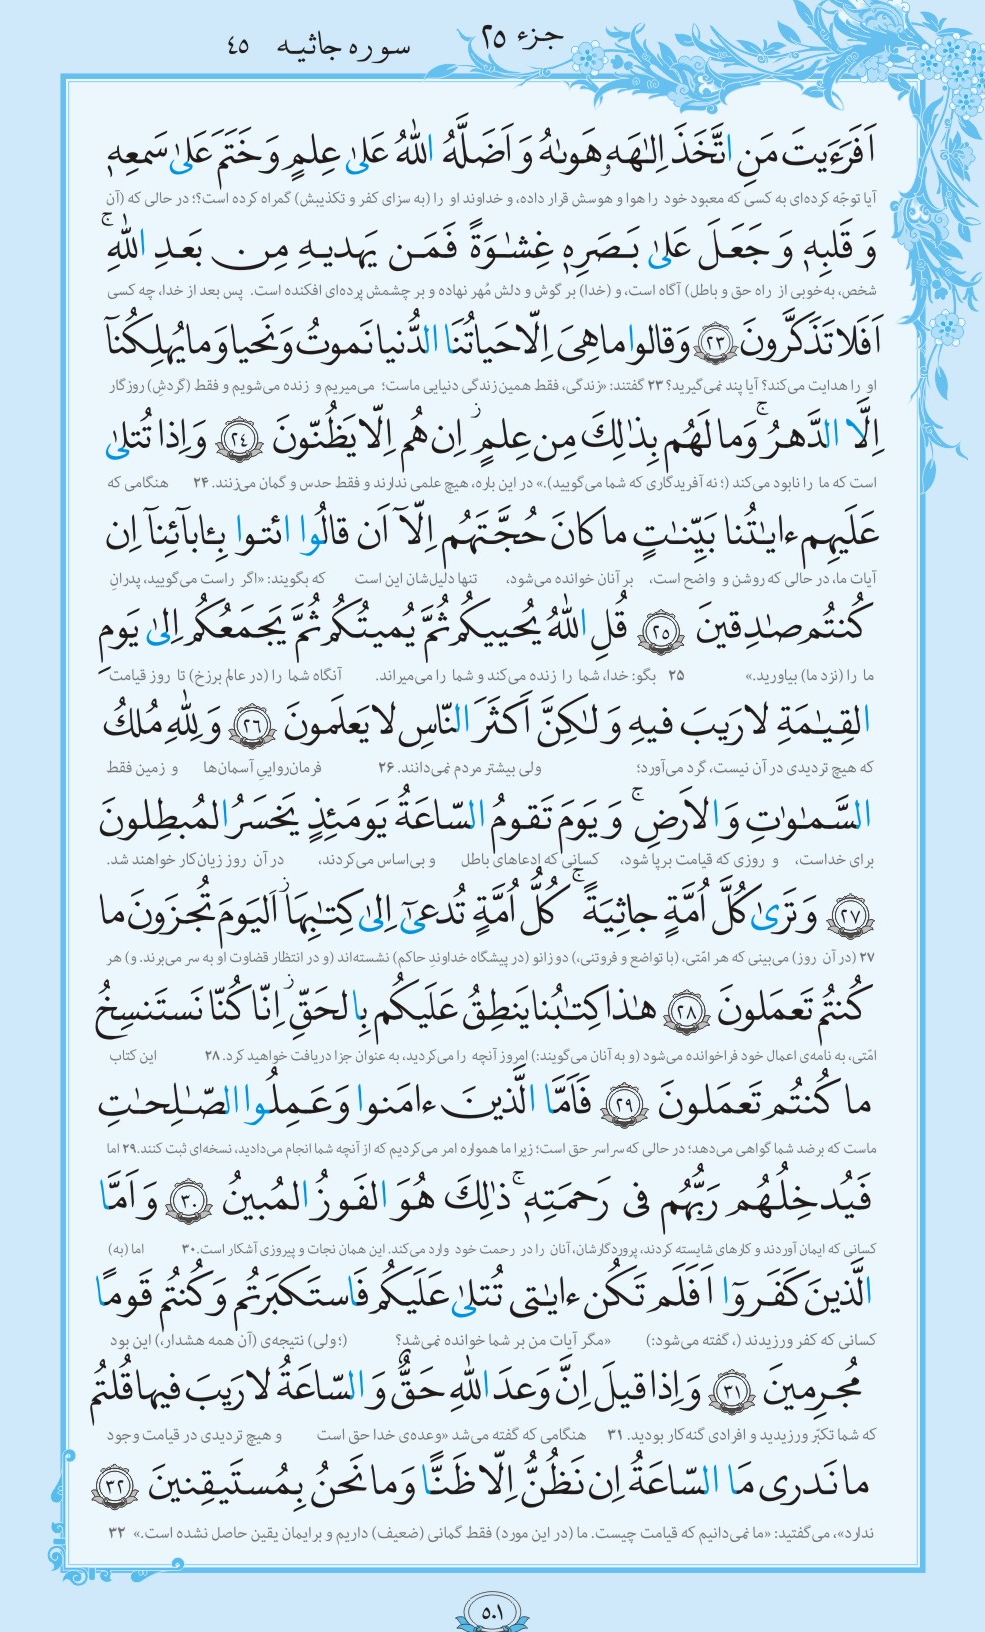 جزء ۲۵
سوره جاثیه ۴۵
اَفَرَءَیتَ مَنِ اتَّخَذَ اِلـٰهَهٗ هَوىٰهُ وَ اَضَلَّهُ اللّٰهُ عَلىٰ عِلمٍ وَ خَتَمَ عَلىٰ سَمعِهٖ
آیا توجّه کرده‌ای به کسی که معبود خود را هوا و هوسش قرار داده، و خداوند او را (به سزای کفر و تکذیبش) گمراه کرده است؟؛ در حالی که (آن
وَ قَلبِهٖ وَ جَعَلَ عَلىٰ بَصَرِهٖ غِشـٰوَةً فَمَن یَهدیهِ مِن بَعدِ اللّٰهِ ۚ
شخص، به‌خوبی از راه حق و باطل) آگاه است، و (خدا) بر گوش و دلش مُهر نهاده و بر چشمش پرده‌ای افکنده است. پس بعد از خدا، چه کسی
اَفَلا تَذَکَّرونَ ﴿۲۳﴾ وَ قالوا ما هِیَ اِلّا حَیاتُنَا الدُّنیا نَموتُ وَ نَحیا وَ ما یُهلِکُنآ
او را هدایت می‌کند؟ آیا پند نمی‌گیرید؟ ۲۳ گفتند: «زندگی، فقط همین زندگی دنیایی ماست؛ می‌میریم و زنده می‌شویم و فقط (گردشِ) روزگار
اِلَّا الدَّهرُ ۚ وَ ما لَهُم بِذٰلِکَ مِن عِلمٍ ۖ اِن هُم اِلّا یَظُنّونَ ﴿۲٤﴾ وَ اِذا تُتلىٰ
است که ما را نابود می‌کند (؛ نه آفریدگاری که شما می‌گویید).» در این باره، هیچ علمی ندارند و فقط حدس و گمان می‌زنند. ۲۴ هنگامی که
عَلَیهِم ءایـٰتُنا بَیِّنـٰتٍ ما کانَ حُجَّتَهُم اِلّآ اَن قالُوا ائتوا بِـٔابآئِنآ اِن
آیات ما، در حالی که روشن و واضح است، بر آنان خوانده می‌شود، تنها دلیل‌شان این است که بگویند: «اگر راست می‌گویید، پدرانِ
کُنتُم صـٰدِقینَ ﴿۲۵﴾ قُلِ اللّٰهُ یُحییکُم ثُمَّ یُمیتُکُم ثُمَّ یَجمَعُکُم اِلىٰ یَومِ
ما را (نزد ما) بیاورید.» ۲۵ بگو: خدا، شما را زنده می‌کند و شما را می‌میراند. آنگاه شما را (در عالم برزخ) تا روز قیامت
القِیـٰمَةِ لا رَیبَ فیهِ وَ لـٰکِنَّ اَکثَرَ النّاسِ لا یَعلَمونَ ﴿۲٦﴾ وَ لِلّٰهِ مُلکُ
که هیچ تردیدی در آن نیست، گرد می‌آورد؛ ولی بیشتر مردم نمی‌دانند. ۲۶ فرمان‌رواییِ آسمان‌ها و زمین فقط
السَّمـٰوٰتِ وَ الاَرضِ ۚ وَ یَومَ تَقومُ السّاعَةُ یَومَئِذٍ یَخسَرُ المُبطِلونَ
برای خداست، و روزی که قیامت برپا شود، کسانی که ادعاهای باطل و بی‌اساس می‌کردند، در آن روز زیان‌کار خواهند شد.
﴿۲۷﴾ وَ تَرىٰ کُلَّ اُمَّةٍ جاثِیَةً ۚ کُلُّ اُمَّةٍ تُدعىٰٓ اِلىٰ کِتـٰبِهَا ۖ الیَومَ تُجزَونَ ما
۲۷ (در آن روز) می‌بینی که هر امّتی، (با تواضع و فروتنی،) دوزانو (در پیشگاه خداوندِ حاکم) نشسته‌اند (و در انتظار قضاوت او به سر می‌برند. و) هر
کُنتُم تَعمَلونَ ﴿۲۸﴾ هـٰذا کِتـٰبُنا یَنطِقُ عَلَیکُم بِالحَقِّ ۖ اِنّا کُنّا نَستَنسِخُ
امّتی، به نامه‌ی اعمال خود فراخوانده می‌شود (و به آنان می‌گویند:) امروز آنچه را می‌کردید، به عنوان جزا دریافت خواهید کرد. ۲۸ این کتاب
ما کُنتُم تَعمَلونَ ﴿۲۹﴾ فَاَمَّا الَّذینَ ءامَنوا وَ عَمِلُوا الصّـٰلِحـٰتِ
ماست که بر ضد شما گواهی می‌دهد؛ در حالی که سراسر حق است؛ زیرا ما همواره امر می‌کردیم که از آنچه شما انجام می‌دادید، نسخه‌ای ثبت کنند. ۲۹ اما
فَیُدخِلُهُم رَبُّهُم فی رَحمَتِهٖ ۚ ذٰلِکَ هُوَ الفَوزُ المُبینُ ﴿۳۰﴾ وَ اَمَّا
کسانی که ایمان آوردند و کارهای شایسته کردند، پروردگارشان، آنان را در رحمت خود وارد می‌کند. این همان نجات و پیروزی آشکار است. ۳۰ اما (به)
الَّذینَ کَفَروٓا اَفَلَم تَکُن ءایـٰتی تُتلىٰ عَلَیکُم فَاستَکبَرتُم وَ کُنتُم قَومًا
کسانی که کفر ورزیدند (، گفته می‌شود:) «مگر آیات من بر شما خوانده نمی‌شد؟ (؛ ولی) نتیجه‌ی (آن همه هشدار،) این بود
مُجرِمینَ ﴿۳۱﴾ وَ اِذا قیلَ اِنَّ وَعدَ اللّٰهِ حَقٌّ وَ السّاعَةُ لا رَیبَ فیها قُلتُم
که شما تکبّر ورزیدید و افرادی گنه‌کار بودید. ۳۱ هنگامی که گفته می‌شد «وعده‌ی خدا حق است و هیچ تردیدی در قیامت وجود
ما نَدری مَا السّاعَةُ اِن نَظُنُّ اِلّا ظَنًّا وَ ما نَحنُ بِمُستَیقِنینَ ﴿۳۲﴾
ندارد»، می‌گفتید: «ما نمی‌دانیم که قیامت چیست. ما (در این مورد) فقط گمانی (ضعیف) داریم و برایمان یقین حاصل نشده است.» ۳۲
۵۰۱